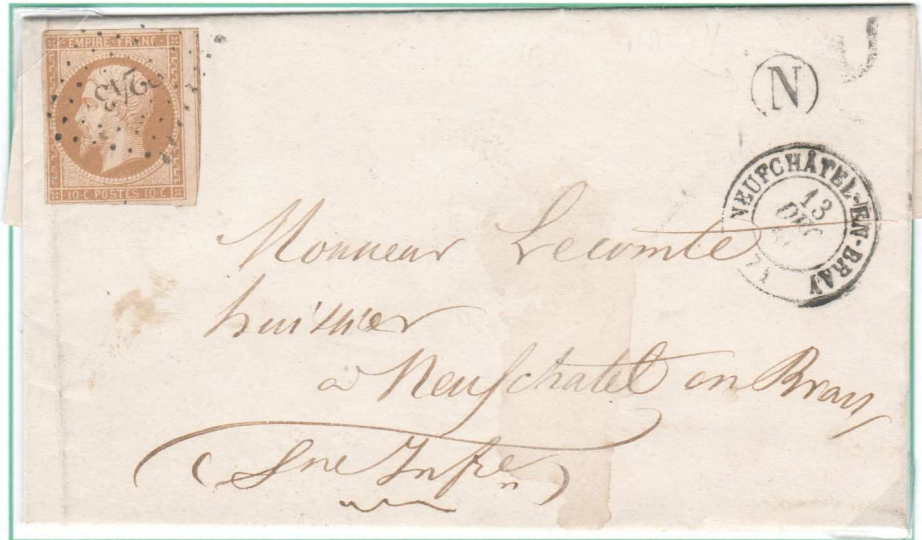 EMPIRE FRANC
2213
10·C POSTES 10·C
N
NEUFCHÂTEL-EN-BRAY
13
DEC
Monsieur Lecomte
huissier
à Neufchatel en Bray
(Sne Infre)